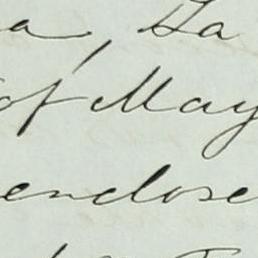 a, Ga
of May
enclose